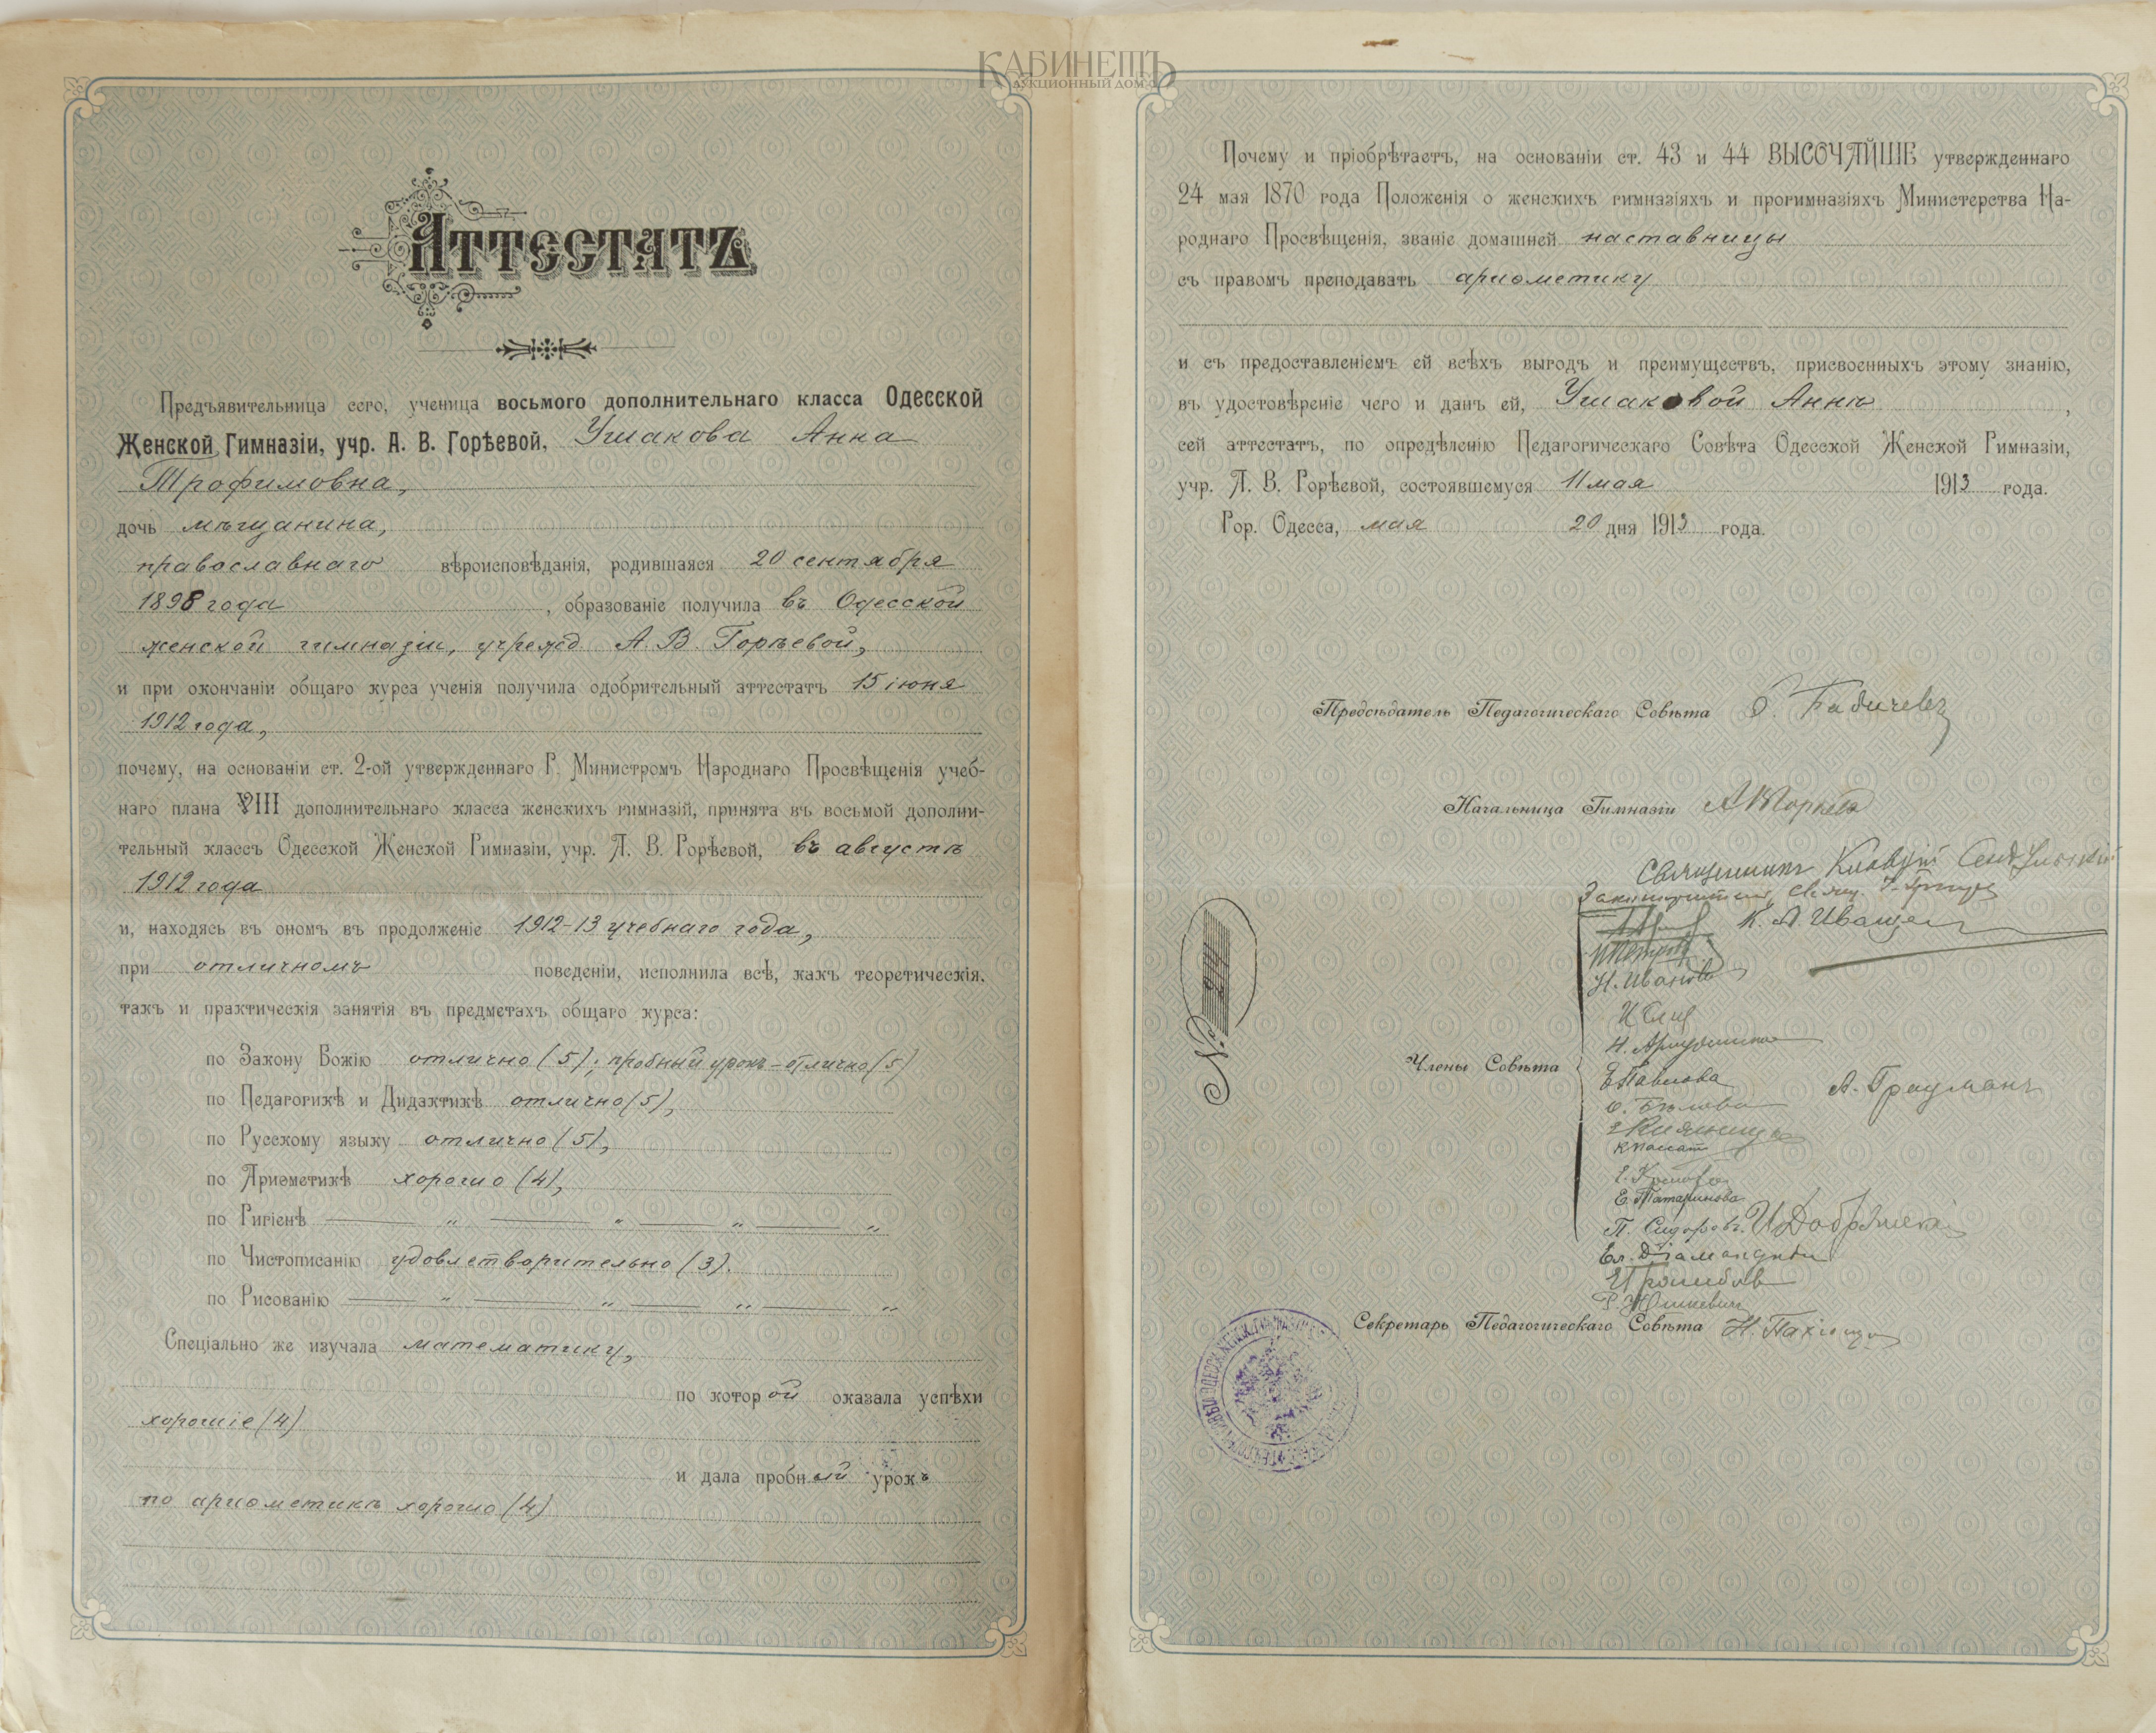 КАБИНЕТЪ
АУКЦИОННЫЙ ДОМ
Аттестатъ
Предъявительница сего, ученица восьмого дополнительнаго класса Одесской
Женской Гимназіи, учр. А. В. Горѣевой, Ушакова Анна
Трофимовна,
дочь мѣщанина,
православнаго вѣроисповѣданія, родившаяся 20 сентября
1898 года, образованіе получила въ Одесской
женской гимназіи, учрежд. А. В. Горѣевой,
и при окончаніи общаго курса ученія получила одобрительный аттестатъ 15 іюня
1912 года,
почему, на основаніи ст. 2-ой утвержденнаго Г. Министромъ Народнаго Просвѣщенія учеб-
наго плана VIII дополнительнаго класса женскихъ гимназій, принята въ восьмой дополни-
тельный классъ Одесской Женской Гимназіи, учр. А. В. Горѣевой, въ августѣ
1912 года
и, находясь въ ономъ въ продолженіе 1912-13 учебнаго года,
при отличномъ поведеніи, исполнила всѣ, какъ теоретическія,
такъ и практическія занятія въ предметахъ общаго курса:
по Закону Божію отлично (5); пробный урокъ - отлично (5)
по Педагогикѣ и Дидактикѣ отлично (5),
по Русскому языку отлично (5),
по Ариѳметикѣ хорошо (4),
по Гигіенѣ — „ — „ — „ — „
по Чистописанію удовлетворительно (3).
по Рисованію — „ — „ — „ — „
Спеціально же изучала математику,
по которой оказала успѣхи
хорошіе (4)
и дала пробный урокъ
по ариѳметикѣ хорошо (4)
Почему и пріобрѣтаетъ, на основаніи ст. 43 и 44 ВЫСОЧАЙШЕ утвержденнаго
24 мая 1870 года Положенія о женскихъ гимназіяхъ и прогимназіяхъ Министерства На-
роднаго Просвѣщенія, званіе домашней наставницы
съ правомъ преподавать ариѳметику
и съ предоставленіемъ ей всѣхъ выгодъ и преимуществъ, присвоенныхъ этому знанію,
въ удостовѣреніе чего и данъ ей, Ушаковой Аннѣ,
сей аттестатъ, по опредѣленію Педагогическаго Совѣта Одесской Женской Гимназіи,
учр. А. В. Горѣевой, состоявшемуся 11 мая 1913 года.
Гор. Одесса, мая 20 дня 1913 года.
Предсѣдатель Педагогическаго Совѣта
Начальница Гимназіи А Горѣева
Священникъ Клавдій
К. А. Иващен
Н. Иванова
№
Члены Совѣта
Е Павлова
А. Грауманъ
О. Бѣлова
Е. Татаринова
П. Сидоровъ.
Ел. Діаманди
Р. Юшкевичъ
Секретарь Педагогическаго Совѣта Н.